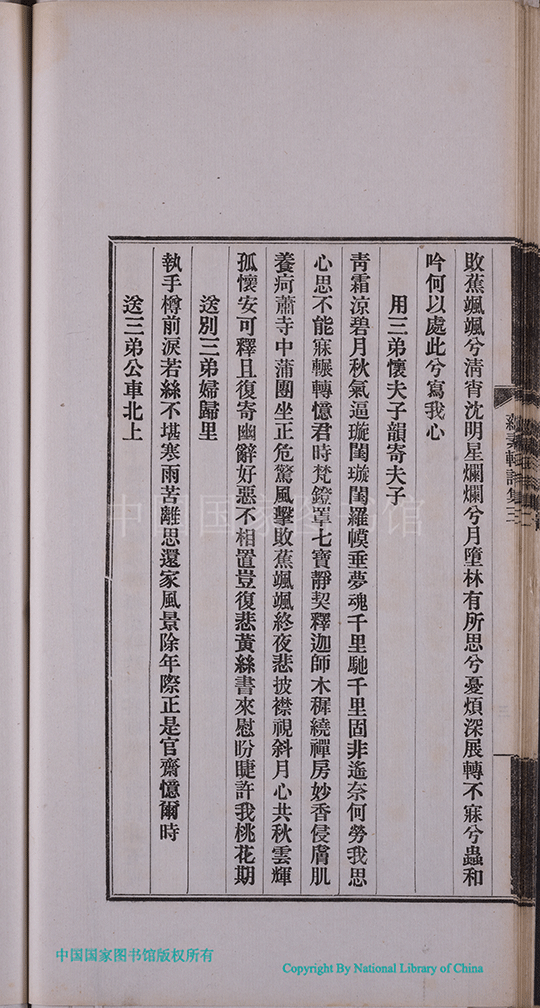 敗蕉颯颯兮清宵沈明星爛爛兮月墮林有所思兮憂煩深展轉不寐兮蟲和
吟何以處此兮寫我心
用三弟懷夫子韻寄夫子
青霜涼碧月秋氣逼璇閨璇閨羅幙垂夢魂千里馳千里固非遙奈何勞我思
心思不能寐輾轉憶君時梵鐙罩七寶靜契釋迦師木穉繞禪房妙香侵膚肌
養疴蕭寺中蒲團坐正危驚風擊敗蕉颯颯終夜悲披襟視斜月心共秋雲輝
孤懷安可釋且復寄幽辭好惡不相置豈復悲黃絲書來慰盼睫許我桃花期
送別三弟婦歸里
執手樽前淚若絲不堪寒雨苦離思還家風景除年際正是官齋憶爾時
送三弟公車北上
詩集三
中国国家图书馆
中国国家图书馆版权所有
Copyright By National Library of China